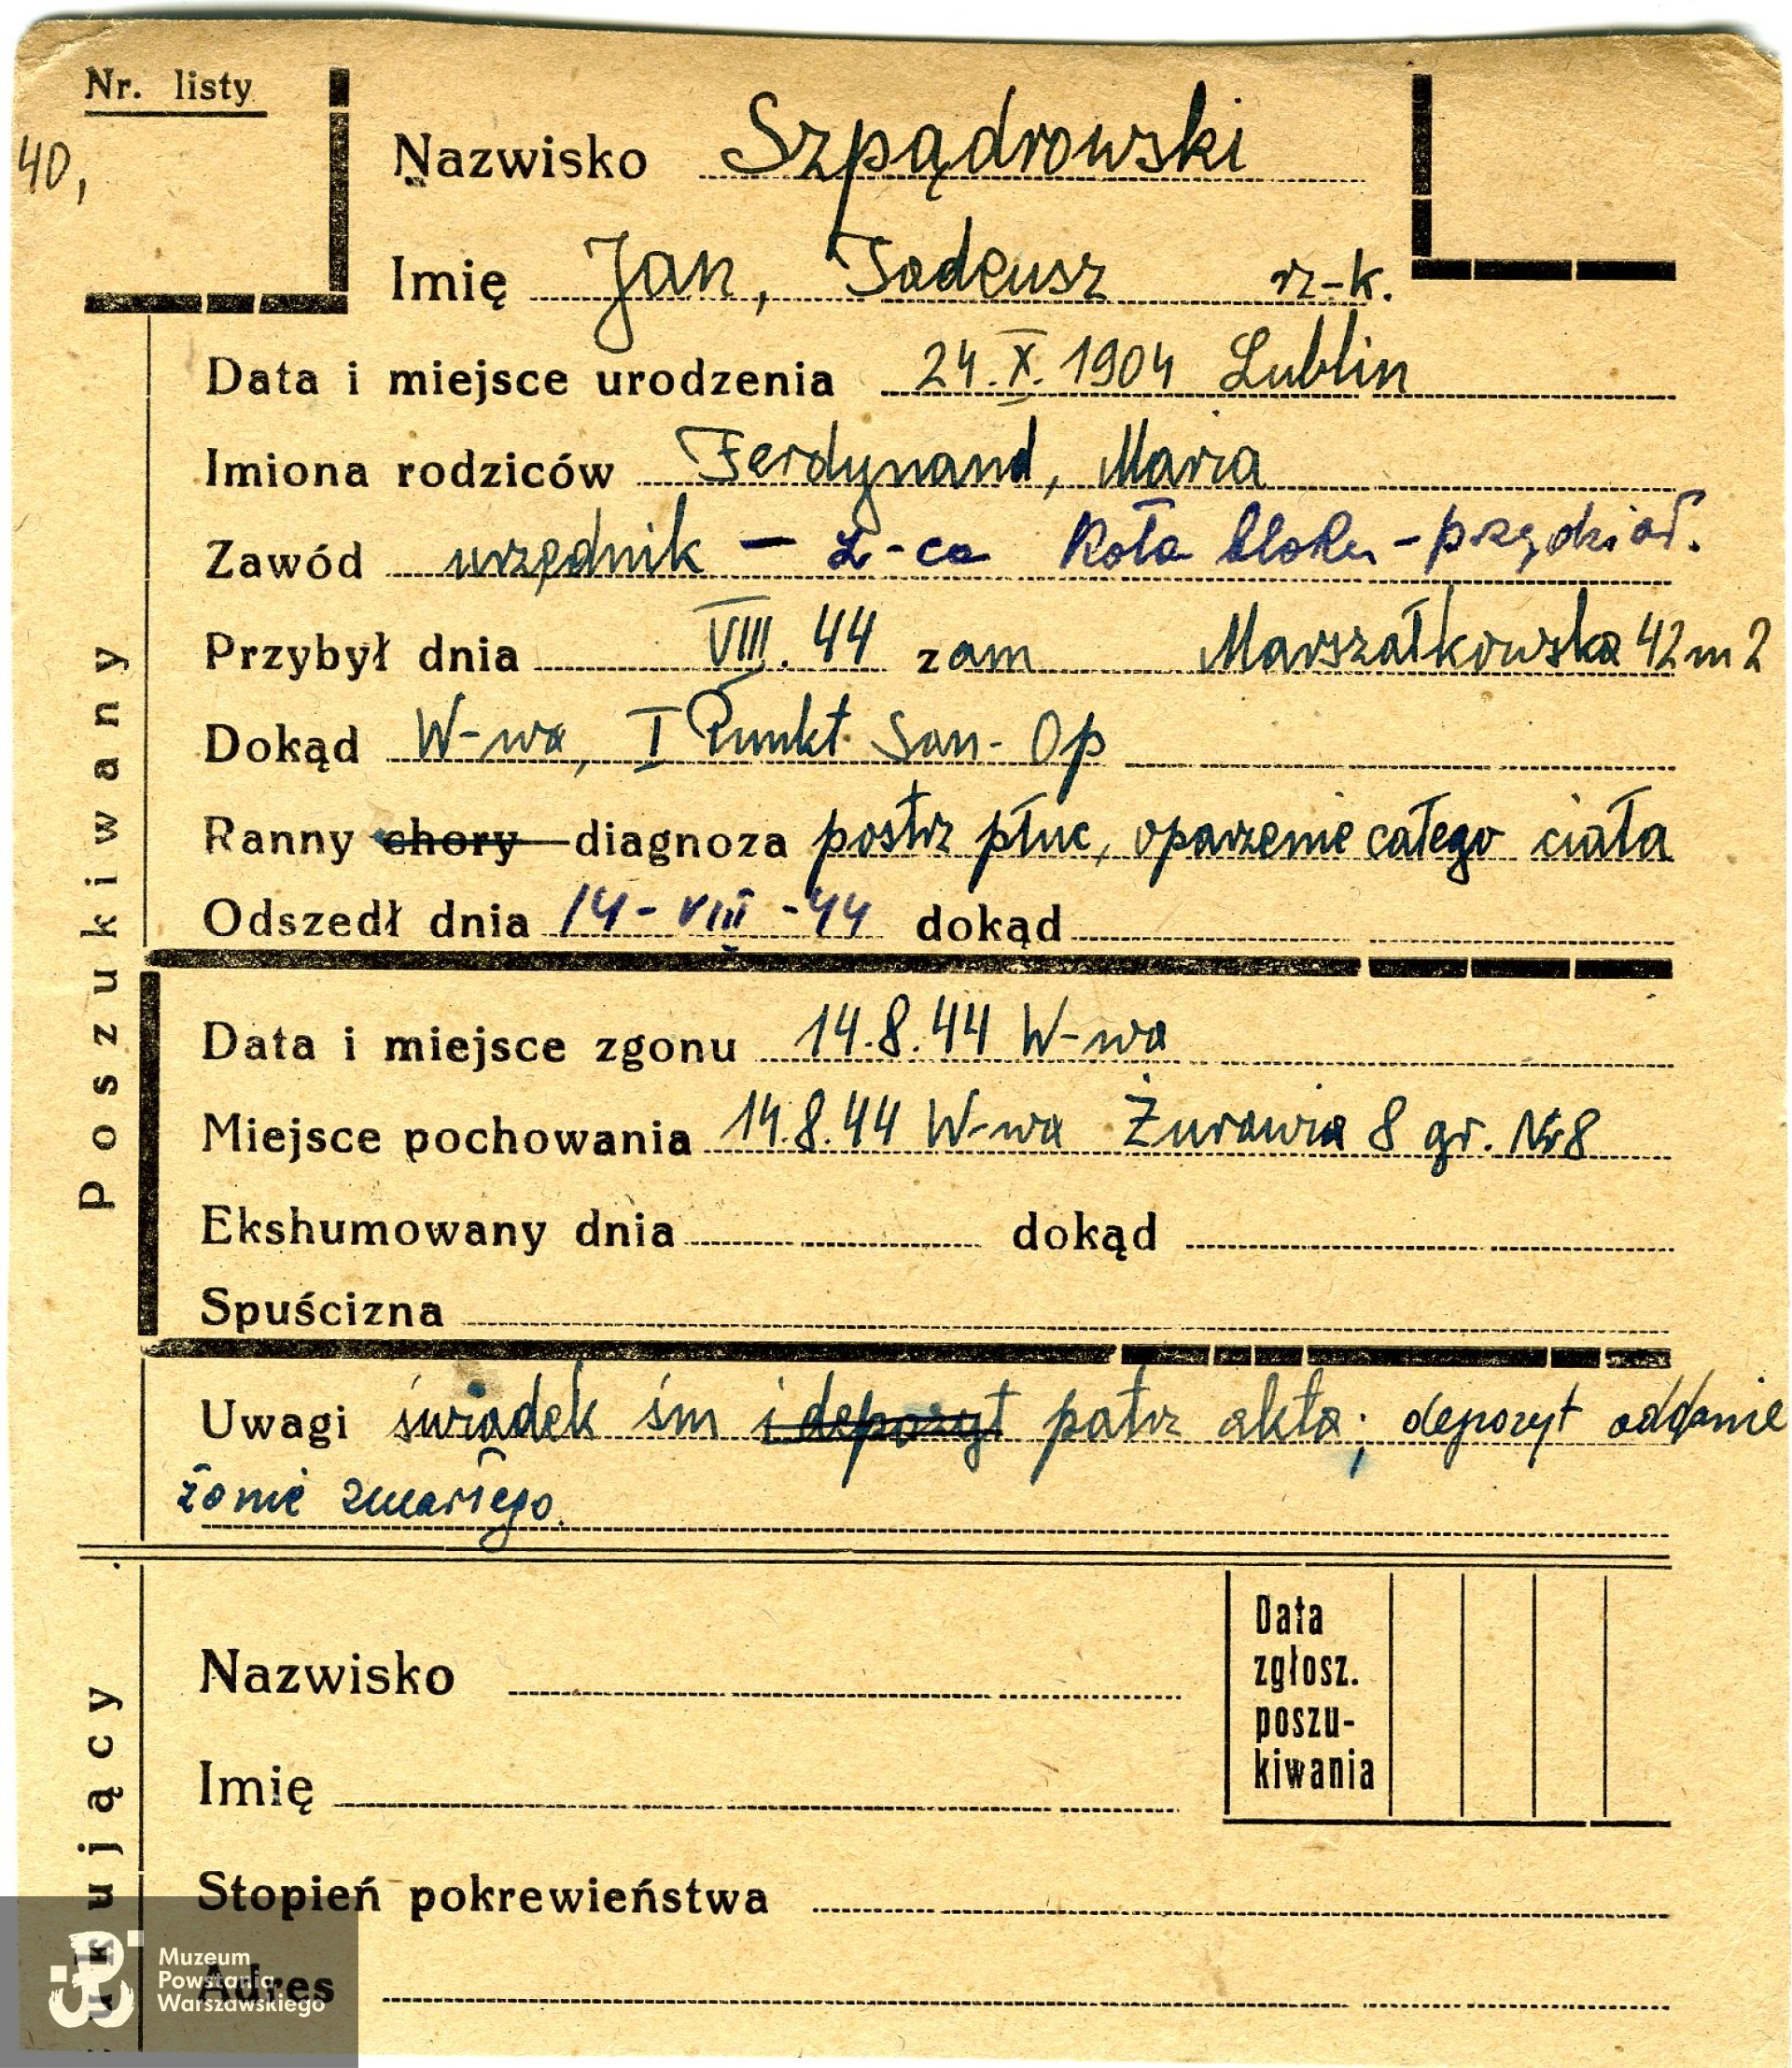 Nr. listy
40,
Nazwisko Szpądrowski
Imię Jan, Tadeusz rz-k.
Data i miejsce urodzenia 24.X.1904 Lublin
Imiona rodziców Ferdynand, Maria
Zawód urzędnik - Z-ca Koła
Przybył dnia VIII.44 zam Marszałkowska 42 m 2
Dokąd W-wa, I Punkt San-Op
Ranny chory diagnoza postrz płuc, oparzenie całego ciała
Odszedł dnia 14-VIII-44 dokąd
Poszukiwany
Data i miejsce zgonu 14.8.44 W-wa
Miejsce pochowania 14.8.44 W-wa Żurawia 8 gr. Nr 8
Ekshumowany dnia dokąd
Spuścizna
Uwagi świadek śm i depozyt patrz akta; depozyt oddanie
żonie zmarłego.
Nazwisko
Imię
Data
zgłosz.
poszu-
kiwania
Stopień pokrewieństwa
Adres
ukujący
Muzeum
Powstania
Warszawskiego